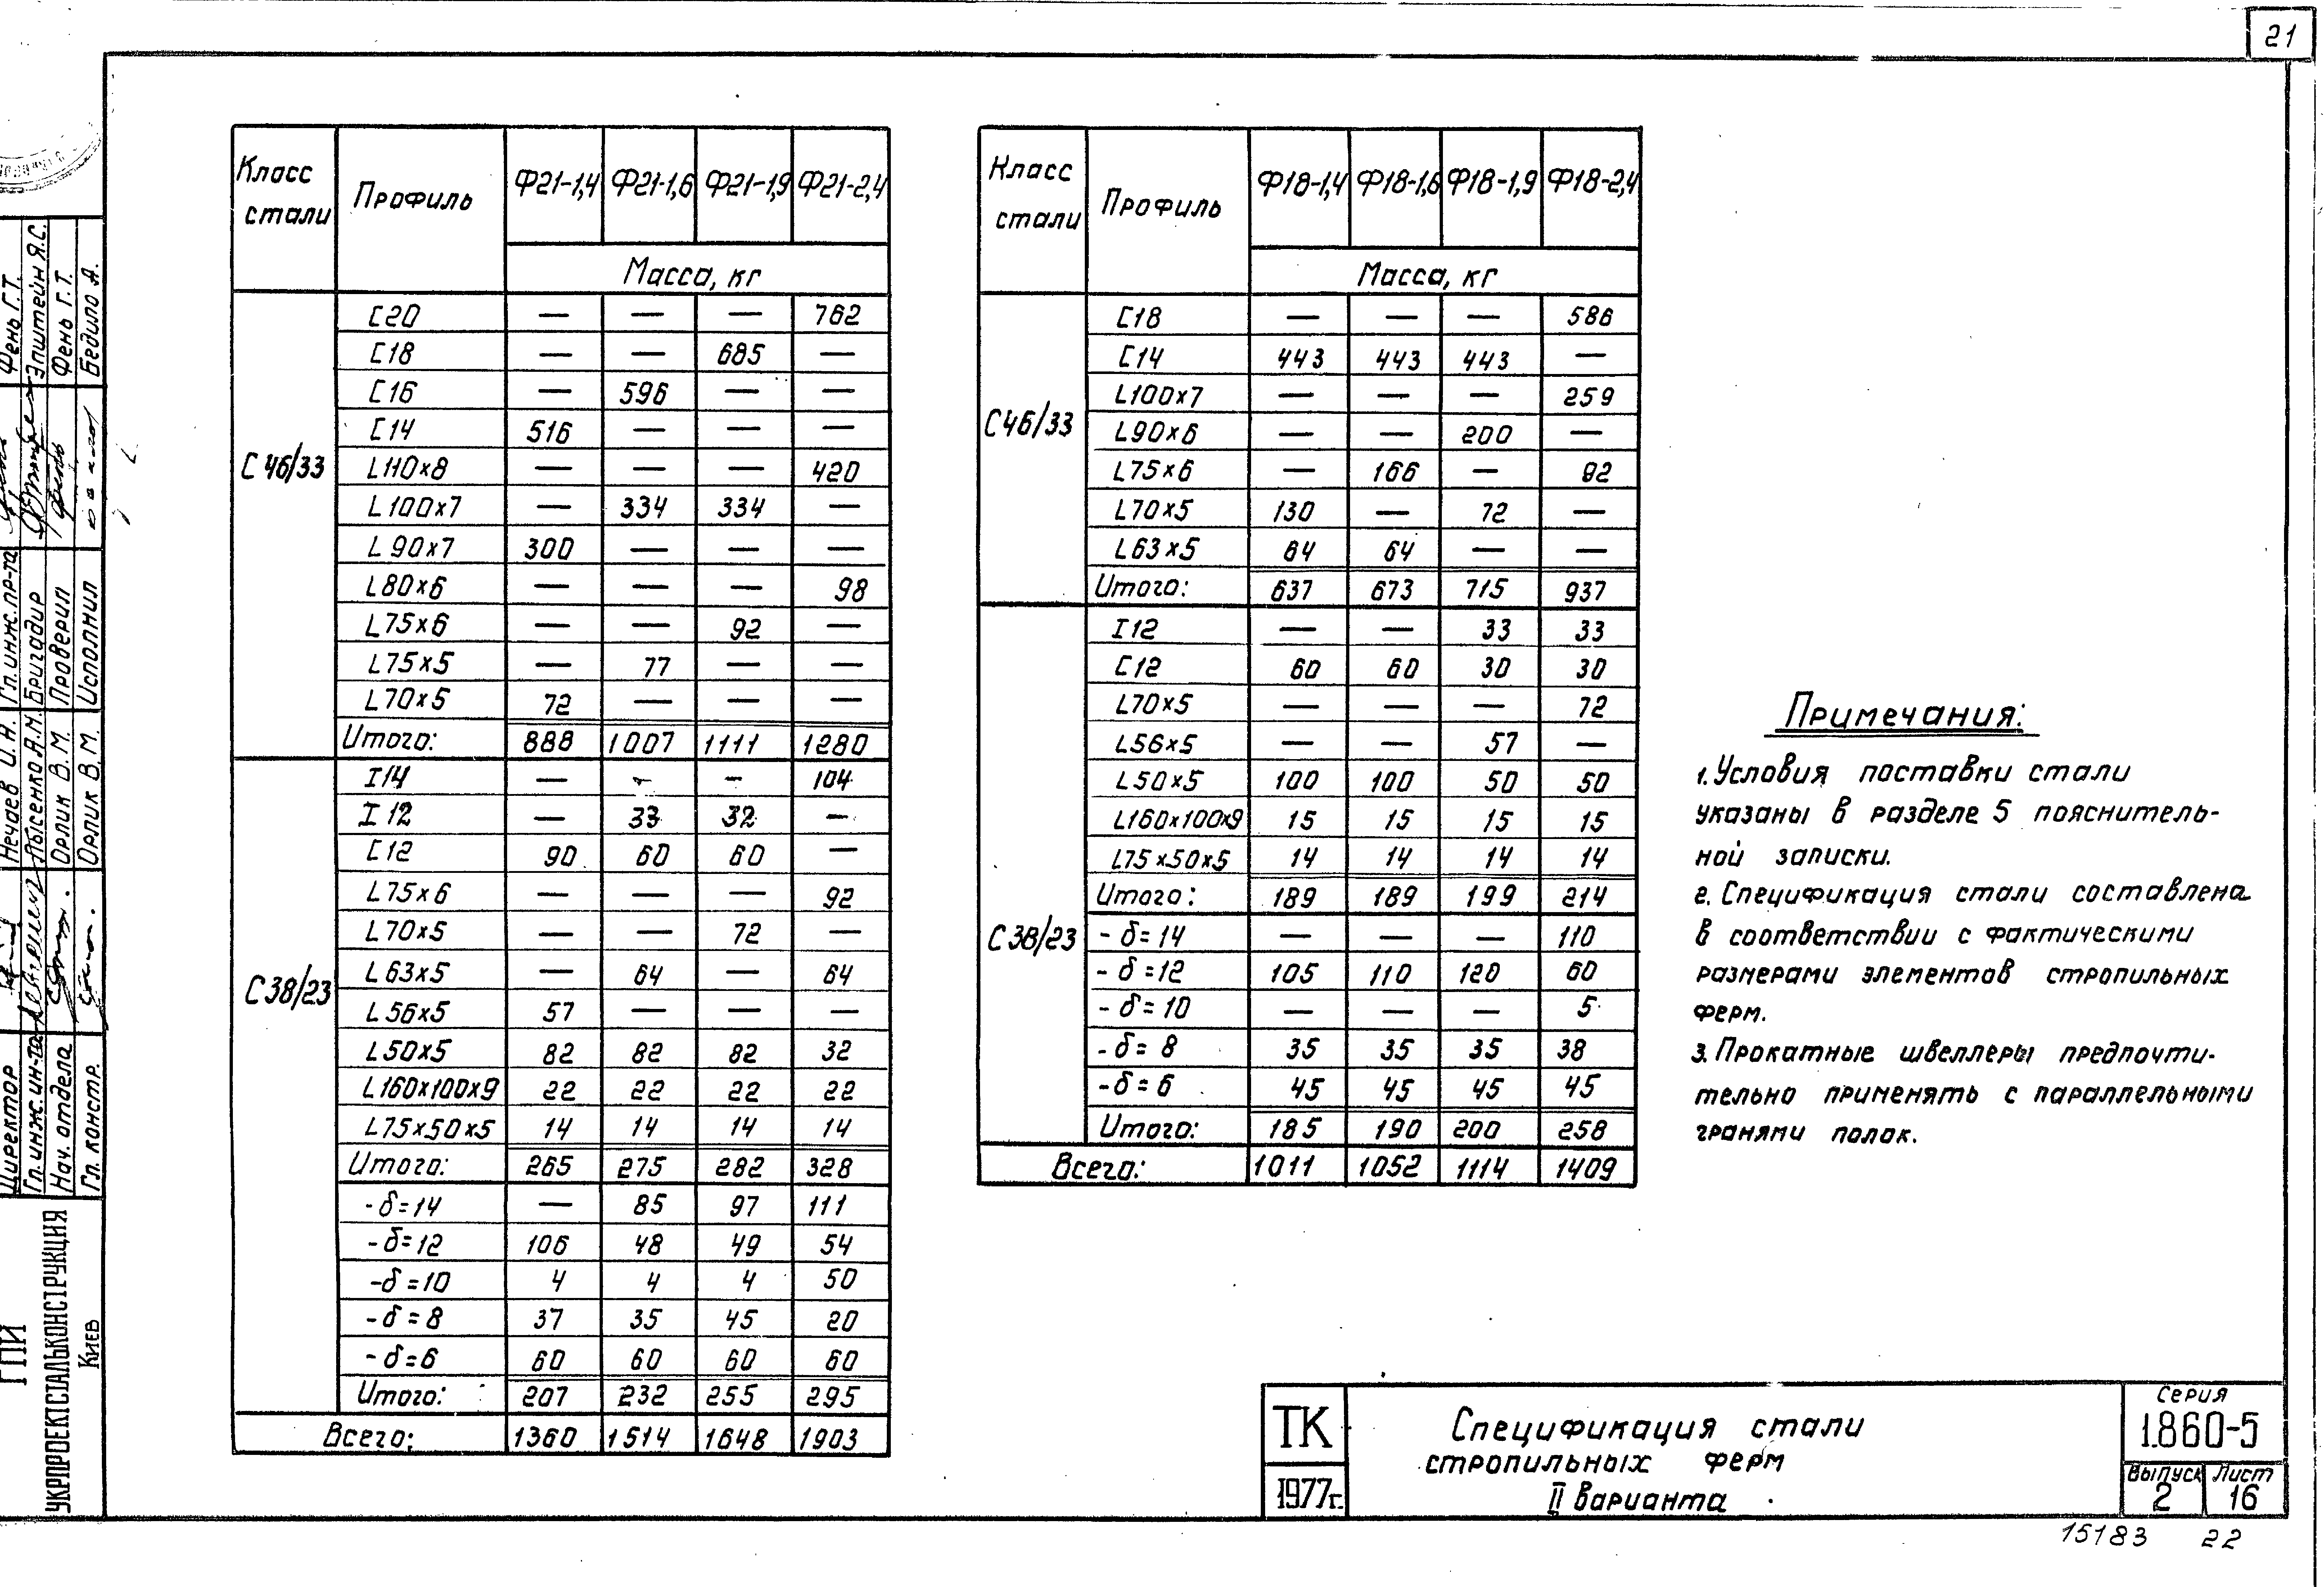 21
Класс стали Профиль Ф21-1,4 Ф21-1,6 Ф21-1,9 Ф21-2,4
Масса, кг
С46/33
[20 — — — 762
[18 — — 685 —
[16 — 596 — —
[14 516 — — —
L110×8 — — — 420
L100×7 — 334 334 —
L90×7 300 — — —
L80×6 — — — 98
L75×6 — — 92 —
L75×5 — 77 — —
L70×5 72 — — —
Итого: 888 1007 1111 1280
С38/23
I14 — — — 104
I12 — 33 32 —
[12 90 60 60 —
L75×6 — — — 92
L70×5 — — 72 —
L63×5 — 64 — 64
L56×5 57 — — —
L50×5 82 82 82 32
L160×100×9 22 22 22 22
L75×50×5 14 14 14 14
Итого: 265 275 282 328
-δ=14 — 85 97 111
-δ=12 106 48 49 54
-δ=10 4 4 4 50
-δ=8 37 35 45 20
-δ=6 60 60 60 60
Итого: 207 232 255 295
Всего: 1360 1514 1648 1903
Класс стали Профиль Ф18-1,4 Ф18-1,6 Ф18-1,9 Ф18-2,4
Масса, кг
С46/33
[18 — — — 586
[14 443 443 443 —
L100×7 — — — 259
L90×6 — — 200 —
L75×6 — 166 — 92
L70×5 130 — 72 —
L63×5 64 64 — —
Итого: 637 673 715 937
С38/23
I12 — — 33 33
[12 60 60 30 30
L70×5 — — — 72
L56×5 — — 57 —
L50×5 100 100 50 50
L160×100×9 15 15 15 15
L75×50×5 14 14 14 14
Итого: 189 189 199 214
-δ=14 — — — 110
-δ=12 105 110 120 60
-δ=10 — — — 5
-δ=8 35 35 35 38
-δ=6 45 45 45 45
Итого: 185 190 200 258
Всего: 1011 1052 1114 1409
Примечания:
1. Условия поставки стали
указаны в разделе 5 пояснитель-
ной записки.
2. Спецификация стали составлена
в соответствии с фактическими
размерами элементов стропильных
ферм.
3. Прокатные швеллеры предпочти-
тельно применять с параллельными
гранями полок.
ТК
1977г.
Спецификация стали
стропильных ферм
II варианта
Серия
1.860-5
Выпуск Лист
2 16
15183 22
ГПИ
УКРПРОЕКТСТАЛЬКОНСТРУКЦИЯ
Киев
Директор Нечаев И.Н. Гл. инж. пр-та Фень Г.Т.
Гл. инж. ин-та Лысенко А.Н. Бригадир Эпштейн Я.С.
Нач. отдела Орлик В.М. Проверил Фень Г.Т.
Гл. констр. Орлик В.М. Исполнил Бедило А.